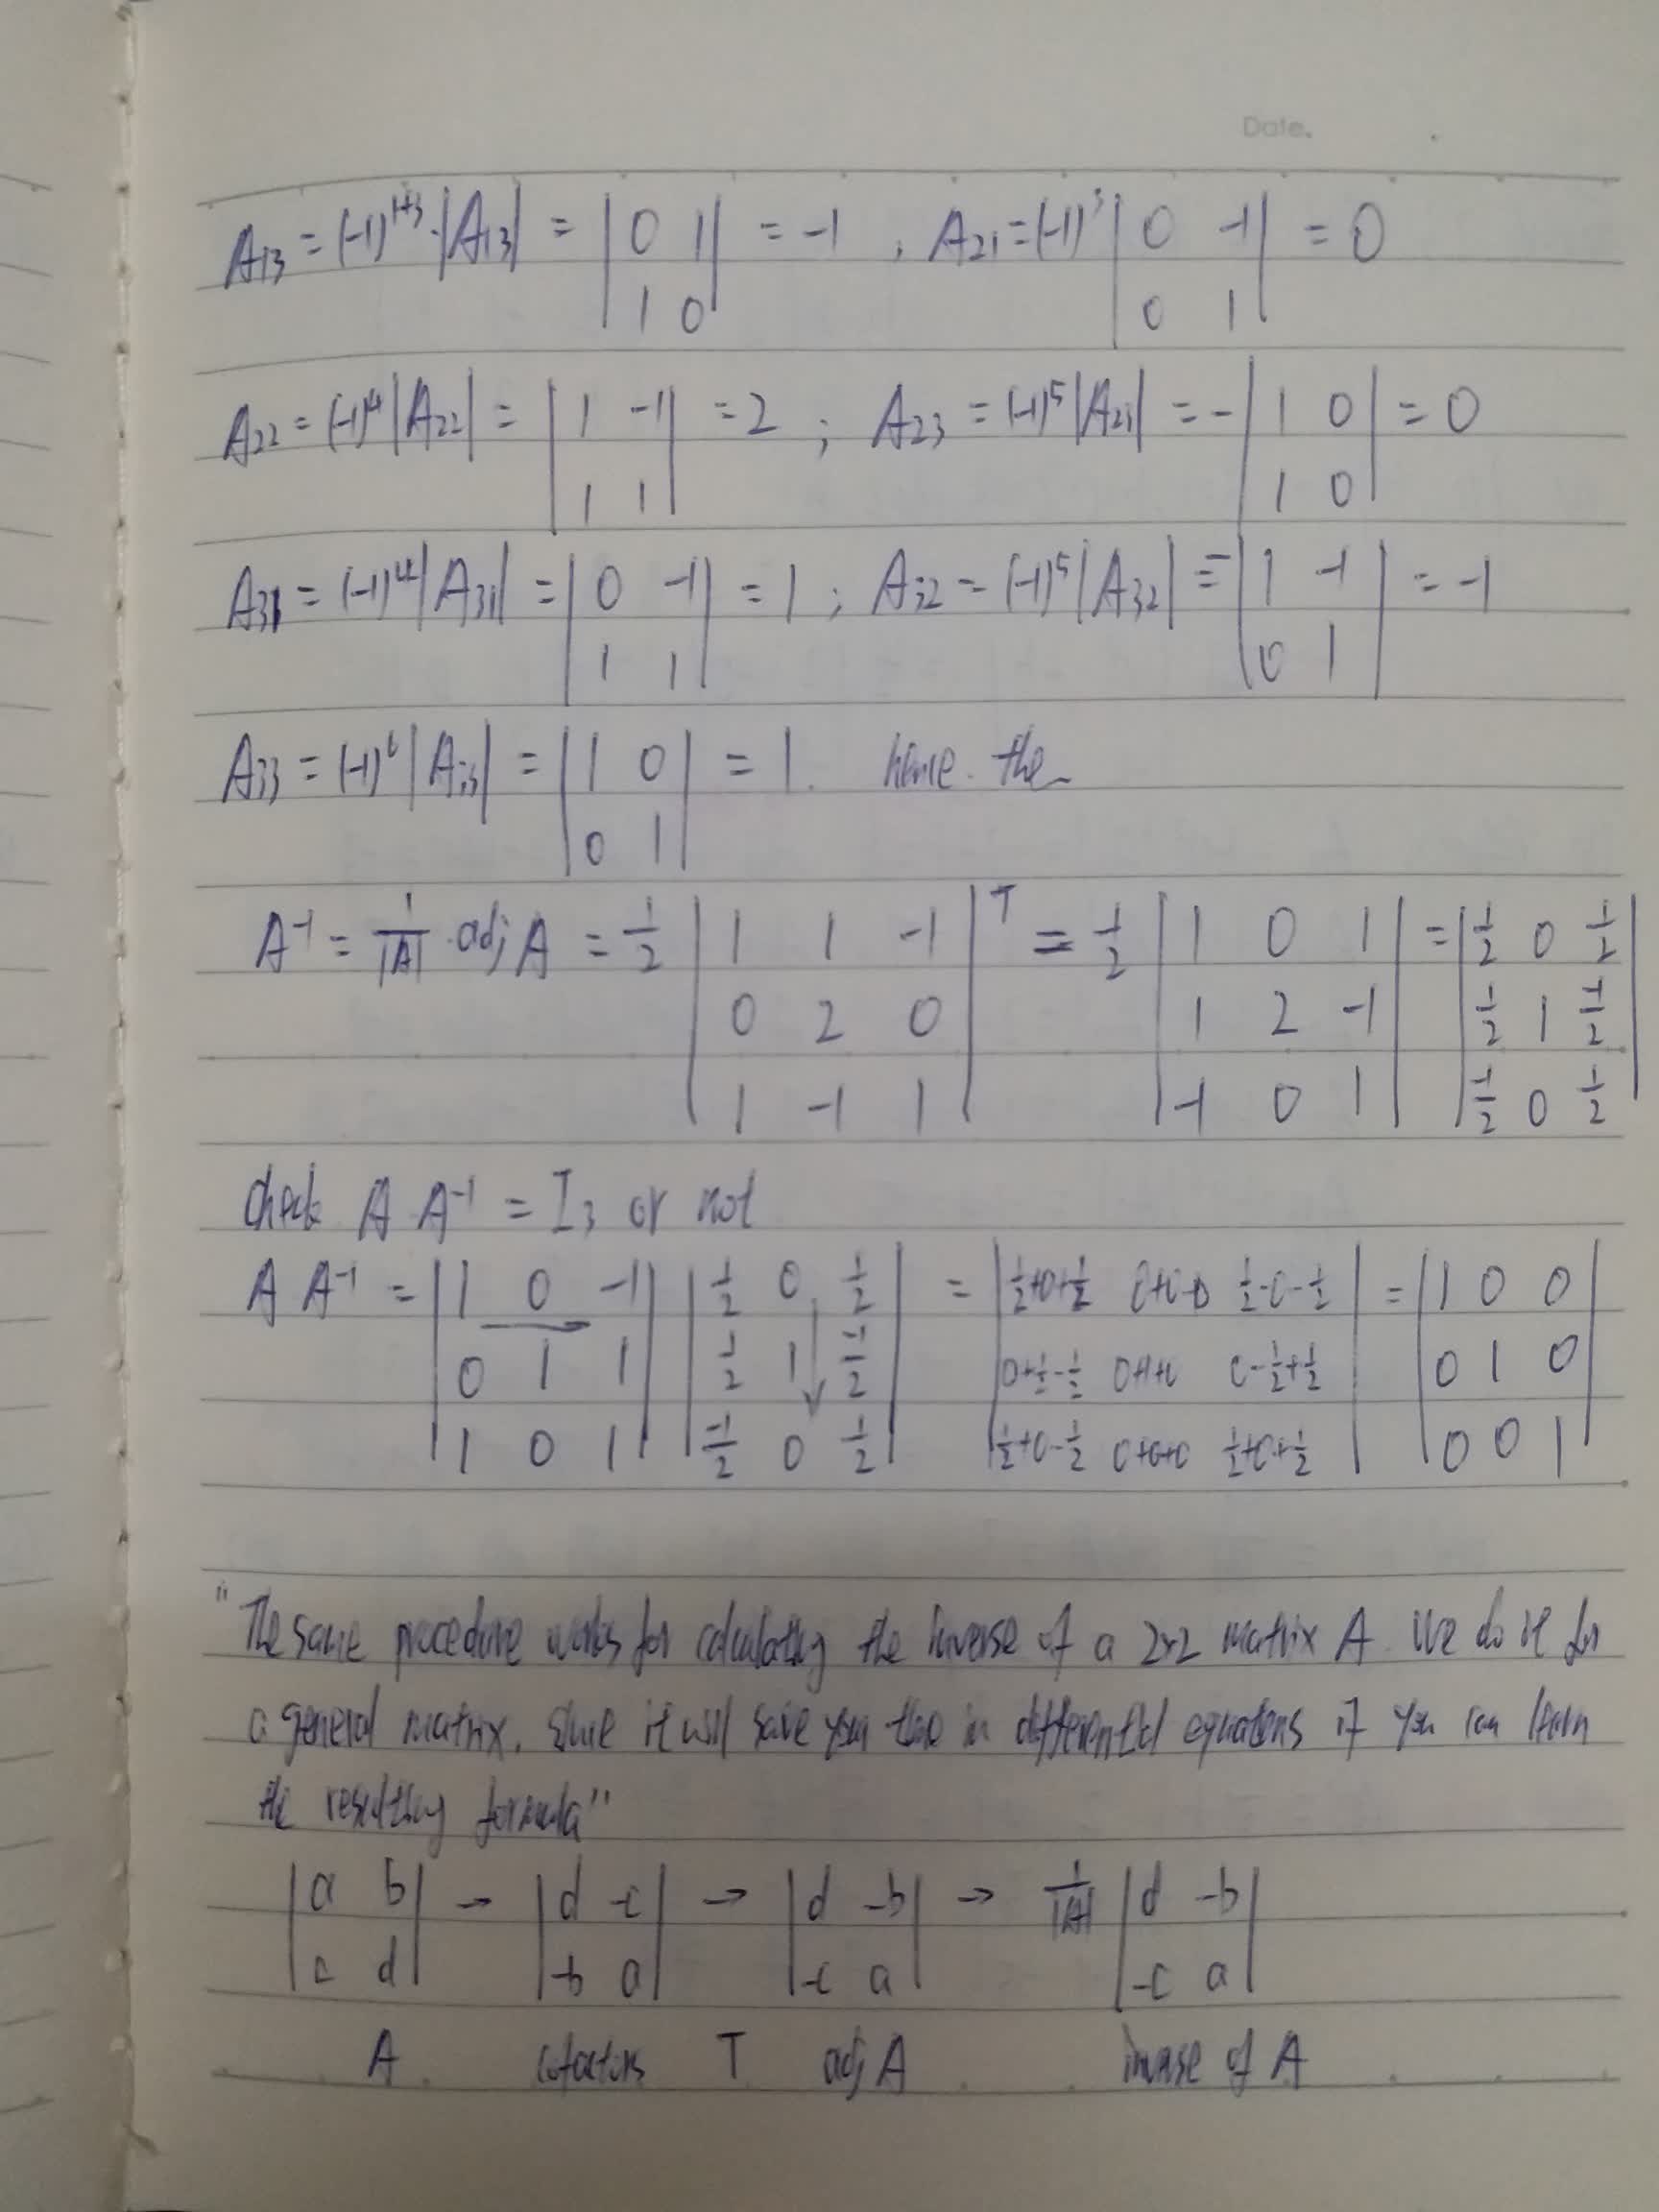 Date.
A₁₃ = (-1)¹⁺³·|A₁₃| = |0 1; 1 0| = -1 , A₂₁ = (-1)³ |0 -1; 0 1| = 0
A₂₂ = (-1)⁴ |A₂₂| = |1 -1; 1 1| = 2 ; A₂₃ = (-1)⁵ |A₂₃| = - |1 0; 1 0| = 0
A₃₁ = (-1)⁴ |A₃₁| = |0 -1; 1 1| = 1 ; A₃₂ = (-1)⁵ |A₃₂| = - |1 -1; 0 1| = -1
A₃₃ = (-1)⁶ |A₃₃| = |1 0; 0 1| = 1. hence. the
A⁻¹ = 1/|A| · adj A = 1/2 |1 1 -1; 0 2 0; 1 -1 1|ᵀ = 1/2 |1 0 1; 1 2 -1; -1 0 1| = |1/2 0 1/2; 1/2 1 -1/2; -1/2 0 1/2|
check A A⁻¹ = I₃ or not
A A⁻¹ = |1 0 -1; 0 1 1; 1 0 1| |1/2 0 1/2; 1/2 1 -1/2; -1/2 0 1/2| = |1/2+0+1/2 0+0-0 1/2-0-1/2; 0+1/2-1/2 0+1+0 0-1/2+1/2; 1/2+0-1/2 0+0+0 1/2+0+1/2| = |1 0 0; 0 1 0; 0 0 1|
"The same procedure works for calculating the inverse of a 2×2 matrix A. We do it for
a general matrix, since it will save you time in differential equations if you can learn
the resulting formula"
|a b; c d| → |d -c; -b a| → |d -b; -c a| → 1/|A| |d -b; -c a|
A cofactors T adj A inverse of A